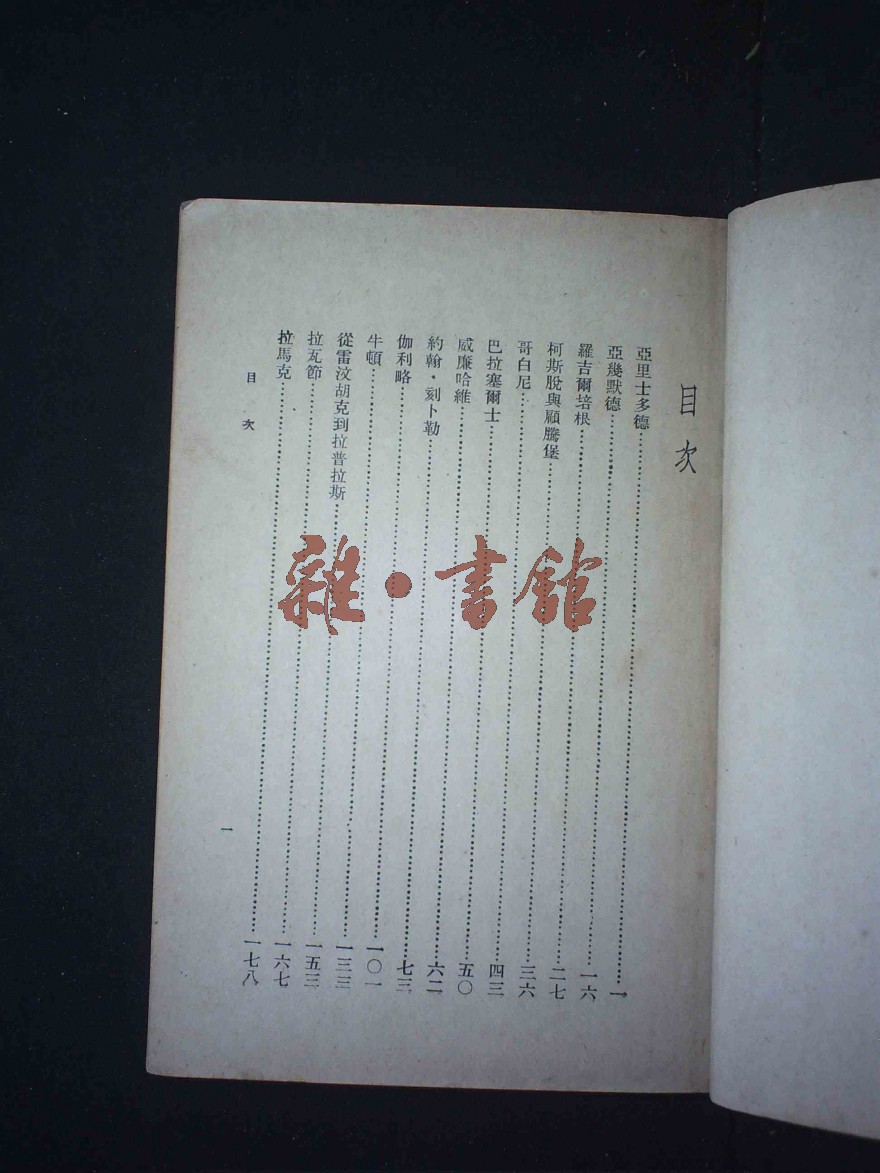 目次
亞里士多德……一
亞幾默德……一六
羅吉爾培根……二七
柯斯脫與顧騰堡……三六
哥白尼……四三
巴拉塞爾士……五〇
威廉哈維……六二
約翰·刻卜勒……七三
伽利略……一〇一
牛頓……一三三
從雷汶胡克到拉普拉斯……一五三
拉瓦節……一六七
拉馬克……一七八
目次
一
雜·書館